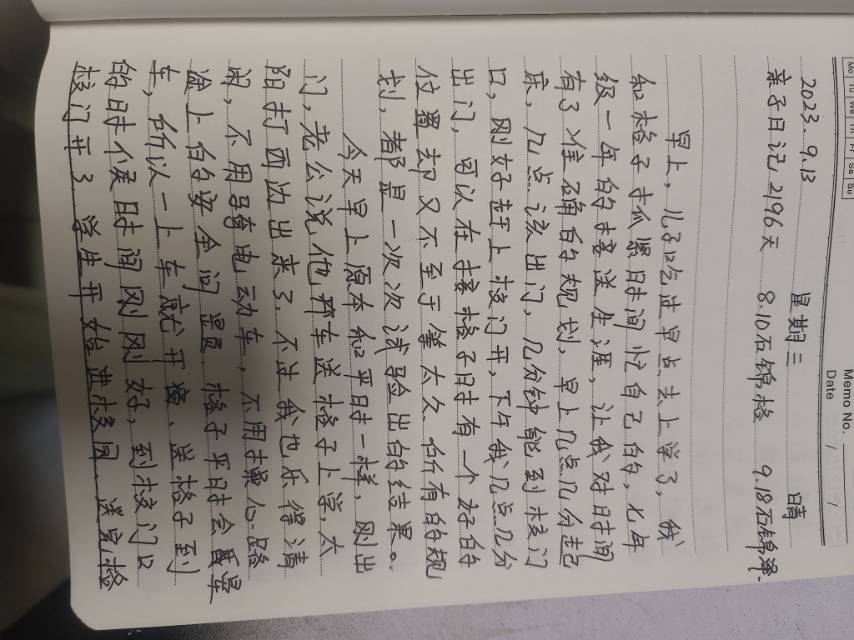 Memo No.
Mo Tu We Th Fr Sa Su
Date / /
2023. 9.13 星期三 晴
亲子日记2196天 8.10石锦格 9.18石锦泽.
早上,儿子吃过早点去上学了,我
和格子抓紧时间忙自己的,七年
级一年的接送生涯,让我对时间
有了准确的规划,早上几点几分起
床,几点该出门,几分钟能到校门
口,刚好赶上校门开,下午我几点几分
出门,可以在接格子时有一个好的
位置却又不至于等太久.所有的规
划,都是一次次试验出的结果。
今天早上原本和平时一样,刚出
门,老公说他开车送格子上学,太
阳打西边出来了,不过我也乐得清
闲,不用骑电动车,不用操心路
途上的安全问题 格子平时会晕
车,所以一上车就开窗、送格子到
的时候时间刚刚好,到校门口
校门开了 学生开始进校园、送完格